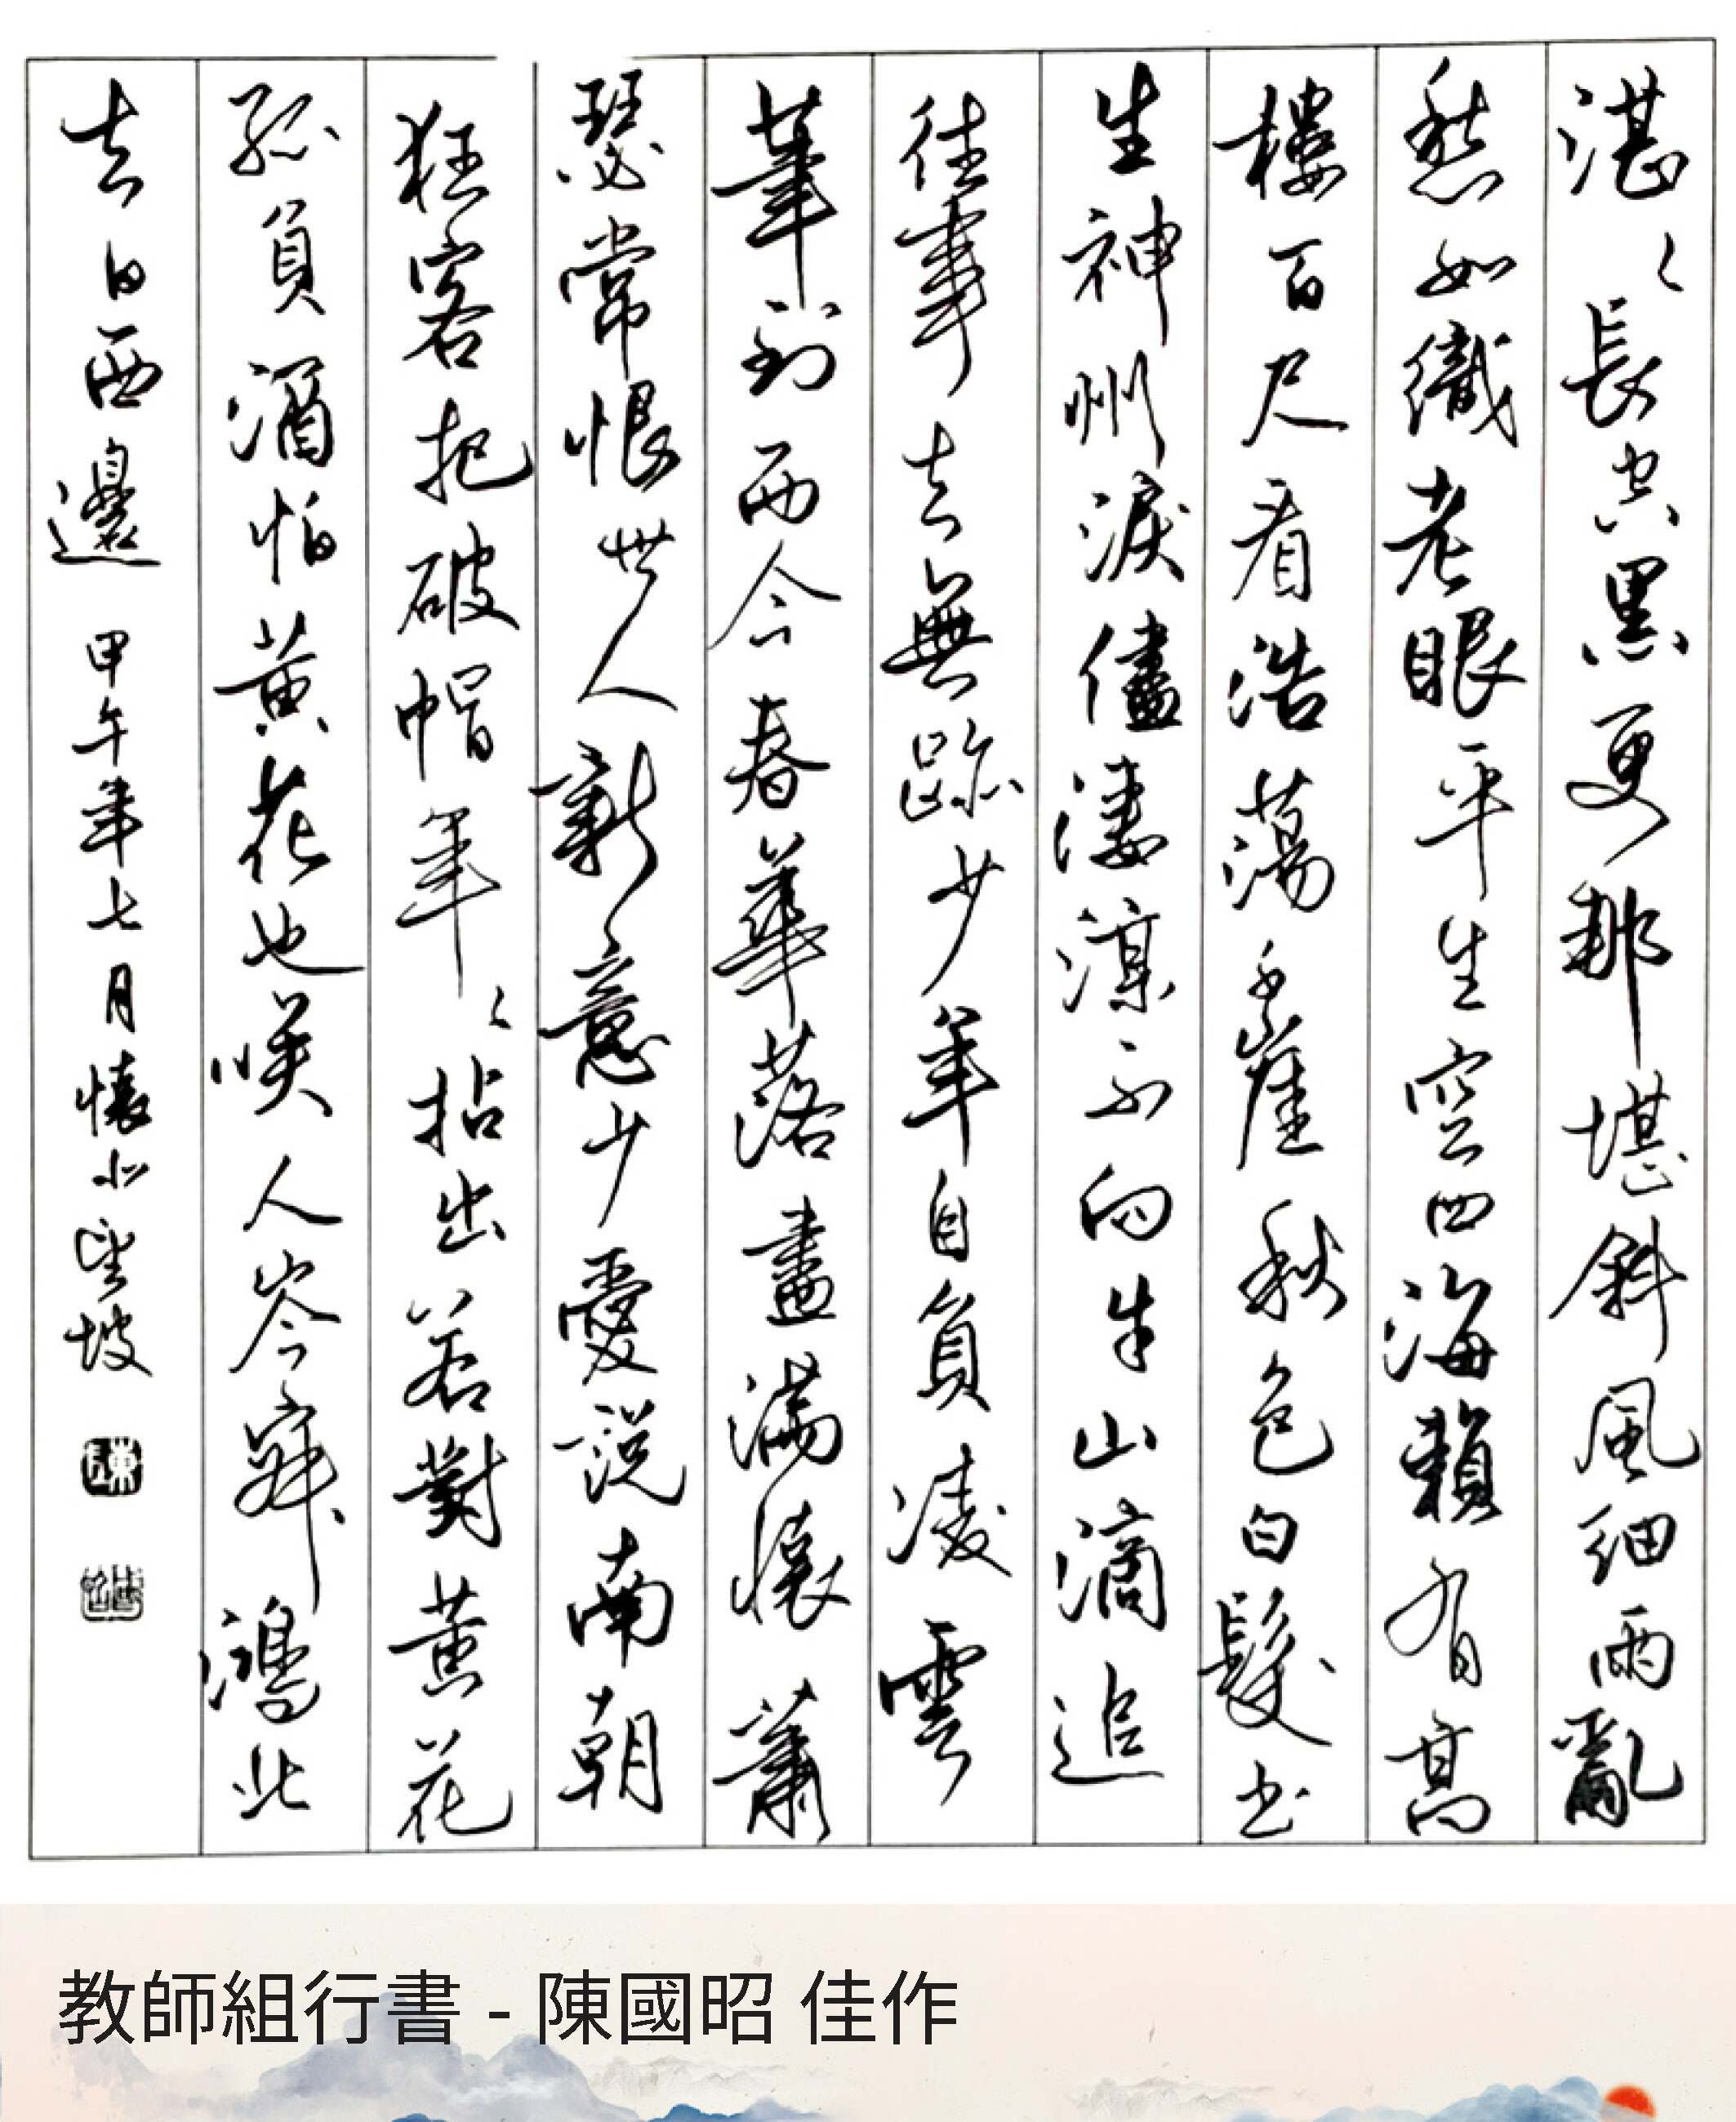 湛々長空黑更那堪斜風細雨亂
愁如織老眼平生空四海賴有高
樓百尺看浩蕩千崖秋色白髮書
生神州淚儘淒涼不向牛山滴追
往事去無跡少年自負凌雲
筆到而今春華落盡滿懷蕭
瑟常恨世人新意少愛說南朝
狂客把破帽年々拈出若對黃花
孤負酒怕黃花也咲人岑寂鴻北
去日西邊 甲午年七月懷 坡
教師組行書 - 陳國昭 佳作